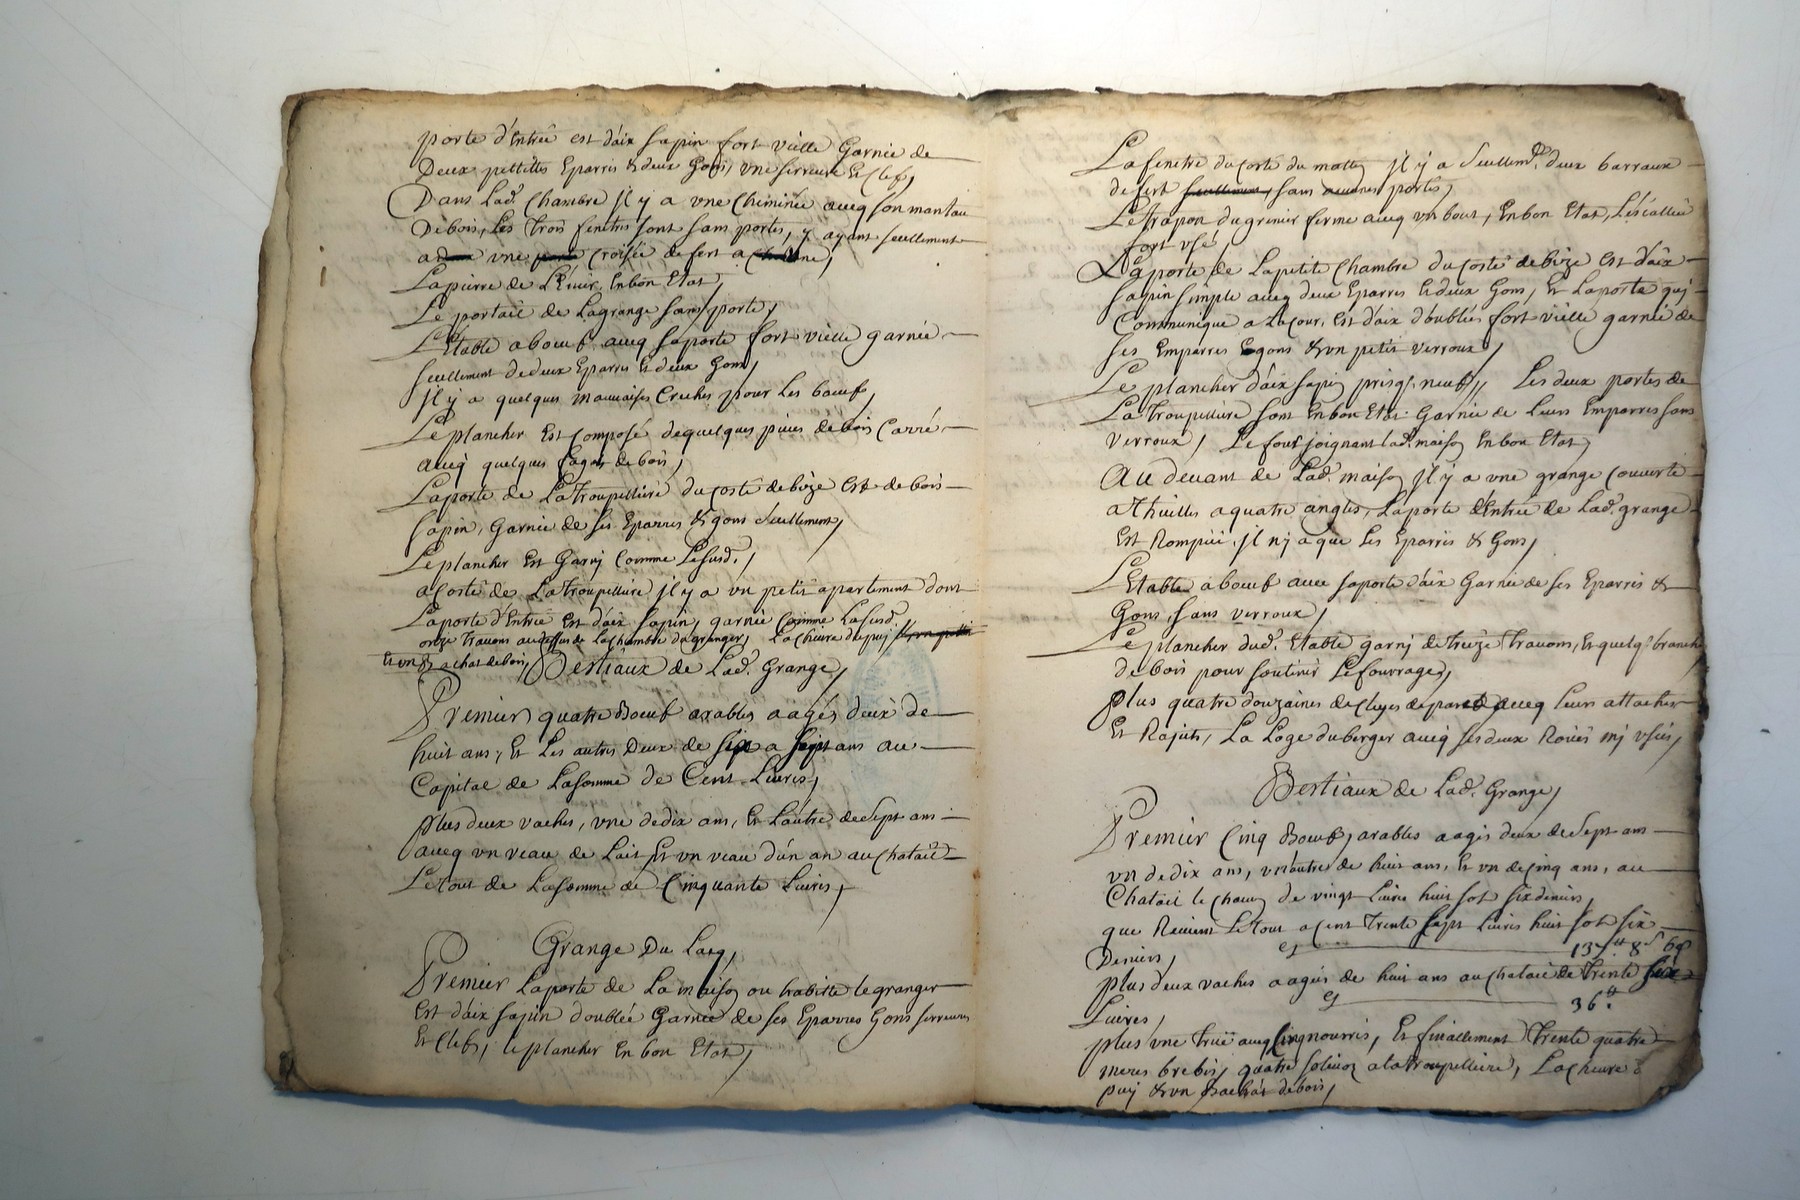 porte d'Entreé est d'aix sapin fort vielle Garnie de
Deux pettittes Eparres & deux Gons, une serreure & Clef,
Dans Lad.e Chambre Jl y a vne Cheminée aueq son mantau
De bois, Les Trois fenetres sont sans portes, y ayant seullement
a vne croisée de fert a
La pierre de L'Euier En bon Etat,
Le portail de La grange sans porte,
L'Etable a boeuf aueq sa porte fort vielle garnie
seullement de deux Eparres & deux Gons,
Jl y a quelques mauuaises Creches pour Les boeuf,
Le plancher Est Composé de quelques pieces de bois Carré
aueq quelques fagots de bois,
La porte de La Troupelliere du costé de bize Est de bois
sapin, Garnie de ses Eparres & gons seullement,
Le plancher Est Garnj Comme Le susd.,
a costé de La Troupelliere jl y a vn petit apartement dont
La porte d'Entrée Est d'aix sapin, garnie Comme La susd.
onze Trauons au dessus de La chambre du granger, La chieure du puj
Et vn Bachat de bois, Bestiaux de Lad.e Grange,
Premier quatre Boeuf arables aagés deux de
huit ans, Et Les autres Deux de six a sept ans au
Capital de La somme de Cent Liures,
plus deux vaches, vne de dix ans, Et L'autre de sept ans
aueq vn veau de Lait Et vn veau d'un an au Chatail
Le tout de La somme de Cinquante Liures,
Grange Du Lacq,
Premier La porte de La maison ou habitte le granger
Est d'aix sapin doublée Garnie de ses Eparres Gons serreures
Et Clef, le plancher En bon Etat,
La fenetre du costé du matin Jl y a seullem.t deux barraux
de fert seullement, sans aucunes portes,
Le trapon du grenier ferme aueq vn bout, En bon Etat, L'escallier
fort vsé,
La porte de La petite Chambre du costé de bize Est d'aix
sapin simple aueq deux Eparres & deux Gons, Et La porte quj
Communique a La Cour, Est d'aix doublés fort vielle garnie de
ses Emparres & gons & vn petit verroux,
Le plancher d'aix sapin presq. neuf, Les deux portes de
La Troupelliere sont En bon Etat Garnie de Leurs Emparres sans
verroux, Le four joignant lad.e maison En bon Etat,
Au deuant de Lad.e maison Jl y a vne grange Couuerte
a Thuilles a quatre angles, La porte d'Entrée de Lad.e grange
Est Rompüe, jl nj a que Les Eparres & Gons,
L'Etable a boeuf auec sa porte d'aix Garnie de ses Eparres &
Gons, sans verroux,
Le plancher dud. Etable garnj de treize Trauons, Et quelq. branche
de bois pour soutenir Le fourrage,
plus quatre douzaines de cleyes de parcd aueq Leurs attaches
Et Rajuts, La Loge du berger aueq ses deux Roües mj vsées,
Bestiaux de Lad.e Grange,
Premier Cinq Boeuf, arables aagés deux de sept ans
vn de dix ans, vn autre de huit ans, Et vn de cinq ans, au
Chatail le chacun de vingt Liures huit sols six deniers,
que Reuient Le tout a cent trente sept Liures huit sols six
Deniers, cy 137 tt 8 s 6 d
plus deux vaches aagées de huit ans au chatail de Trente six
Liures, cy 36 tt
plus vne Truie aueq Cinq nourris, Et finallement Trente quatre
meres brebis, quatre a la troupelliere, La chieure du
puj & vn Bachat de bois,